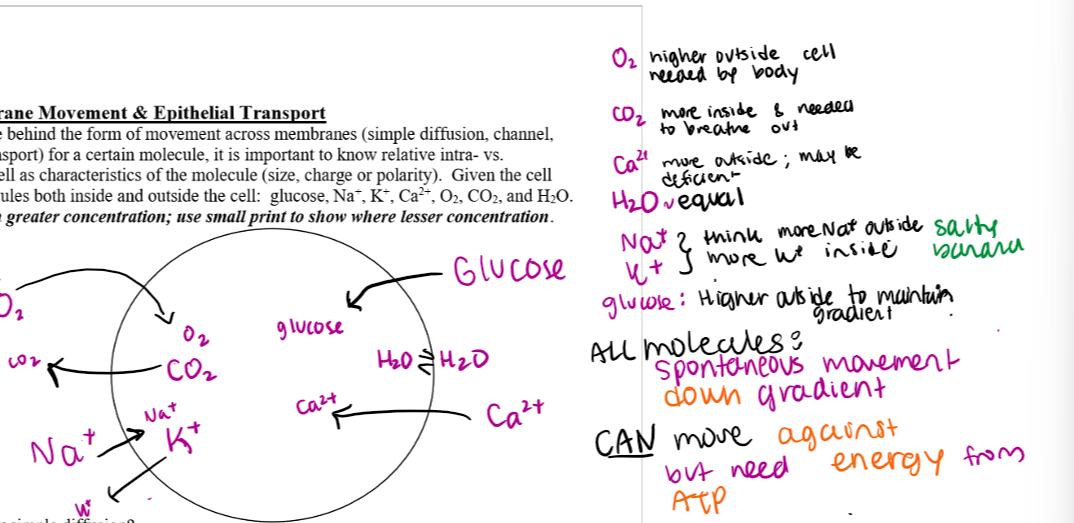 rane Movement & Epithelial Transport
e behind the form of movement across membranes (simple diffusion, channel,
nsport) for a certain molecule, it is important to know relative intra- vs.
ell as characteristics of the molecule (size, charge or polarity). Given the cell
ules both inside and outside the cell: glucose, Na⁺, K⁺, Ca²⁺, O₂, CO₂, and H₂O.
greater concentration; use small print to show where lesser concentration.
O₂
CO₂
Na⁺
K⁺
O₂
CO₂
Na⁺
K⁺
glucose
Glucose
H₂O ⇌ H₂O
Ca²⁺
Ca²⁺
O₂ higher outside cell
needed by body
CO₂ more inside & needed
to breathe out
Ca²⁺ more outside; may be
deficient
H₂O ~ equal
Na⁺ } think more Na⁺ outside salty
K⁺ } more K⁺ inside banana
glucose: Higher outside to maintain
gradient.
ALL molecules:
spontaneous movement
down gradient
CAN move against
but need energy from
ATP